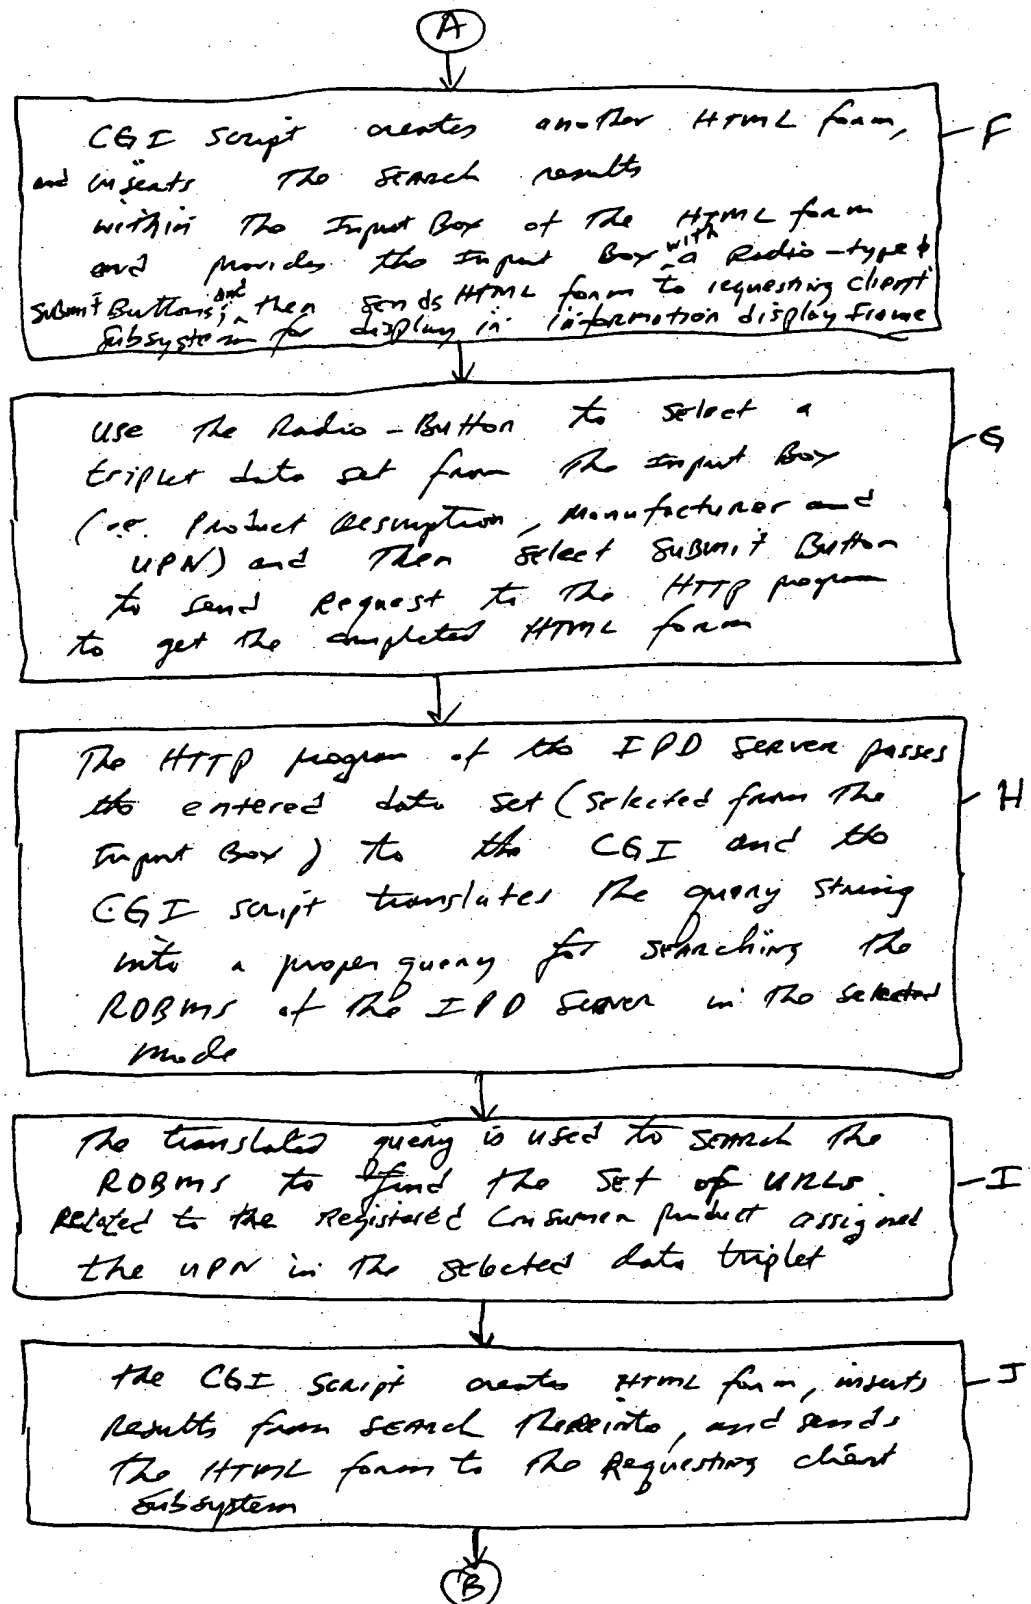 A
CGI Script creates another HTML form, F
and inserts the Search results
within the Input Box of the HTML form
and provides the Input Box with a Radio-type &
Submit Buttons; and then sends HTML form to requesting client
Subsystem for display in information display frame
use the Radio-Button to select a
triplet data set from the Input Box G
(i.e. Product Description, Manufacturer and
UPN) and then select Submit Button
to send Request to the HTTP program
to get the completed HTML form
The HTTP program of the IPD Server passes
the entered data set (selected from the H
Input Box) to the CGI and the
CGI script translates the query string
into a proper query for searching the
RDBMS of the IPD Server in the selected
mode
The translated query is used to search the
RDBMS to find the set of URLs I
Related to the registered Consumer product assigned
the UPN in the selected data triplet
the CGI Script creates HTML form, inserts J
Results from search thereinto, and sends
the HTML form to the Requesting client
Subsystem
B